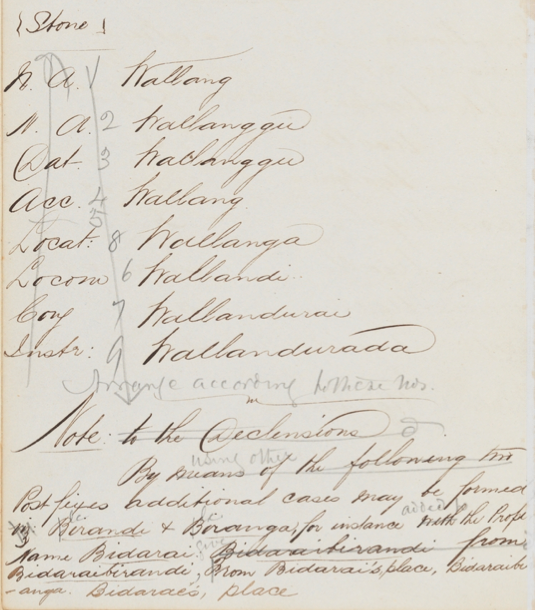 {Stone}
N. A. 1 Wallang
N. A. 2 Wallanggu
Dat. 3 Wallanggu
Acc. 4 Wallang
5
Locat: 8 Wallanga
Locom 6 Wallandi
Conj 7 Wallandurai
Instr: 9 Wallandurada
Arrange according to these Nos.
Note: to the Declensions
using other
By means of the following
Postfixes additional cases may be formed
added
Birandi & Biranga, for instance with the
Name Bidarai Bidaraibirandi from
Bidaraibirandi, from Bidarai's place, Bidaraibi
-anga. Bidarae's, place